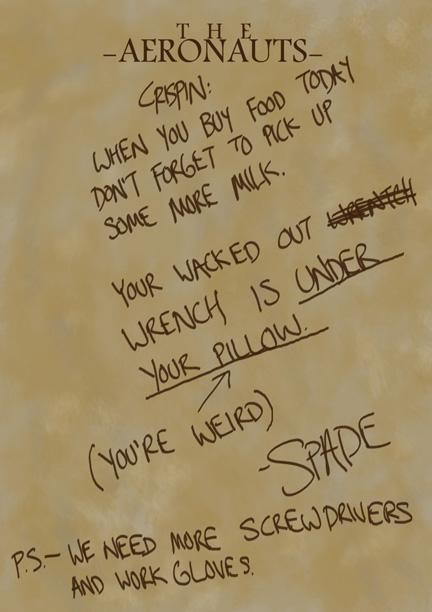 THE
–AERONAUTS–
CRISPIN:
WHEN YOU BUY FOOD TODAY
DON'T FORGET TO PICK UP
SOME MORE MILK.
YOUR WACKED OUT WRENTCH
WRENCH IS UNDER
YOUR PILLOW.
(YOU'RE WEIRD)
-SPADE
P.S.— WE NEED MORE SCREWDRIVERS
AND WORK GLOVES.